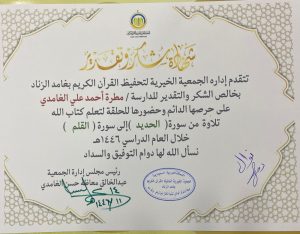 شهادة شكر وتقدير
تتقدم إداره الجمعية الخيرية لتحفيظ القرآن الكريم بغامد الزناد
بخالص الشكر والتقدير للدارسة / مطرة أحمد علي الغامدي
على حرصها الدائم وحضورها للحلقة لتعلم كتاب الله
تلاوة من سورة ( الحديد ) إلى سورة ( القلم )
خلال العام الدراسي ١٤٤٦هـ
نسأل الله لها دوام التوفيق والسداد
رئيس مجلس إدارة الجمعية
عبدالخالق معاضه حسن الغامدي